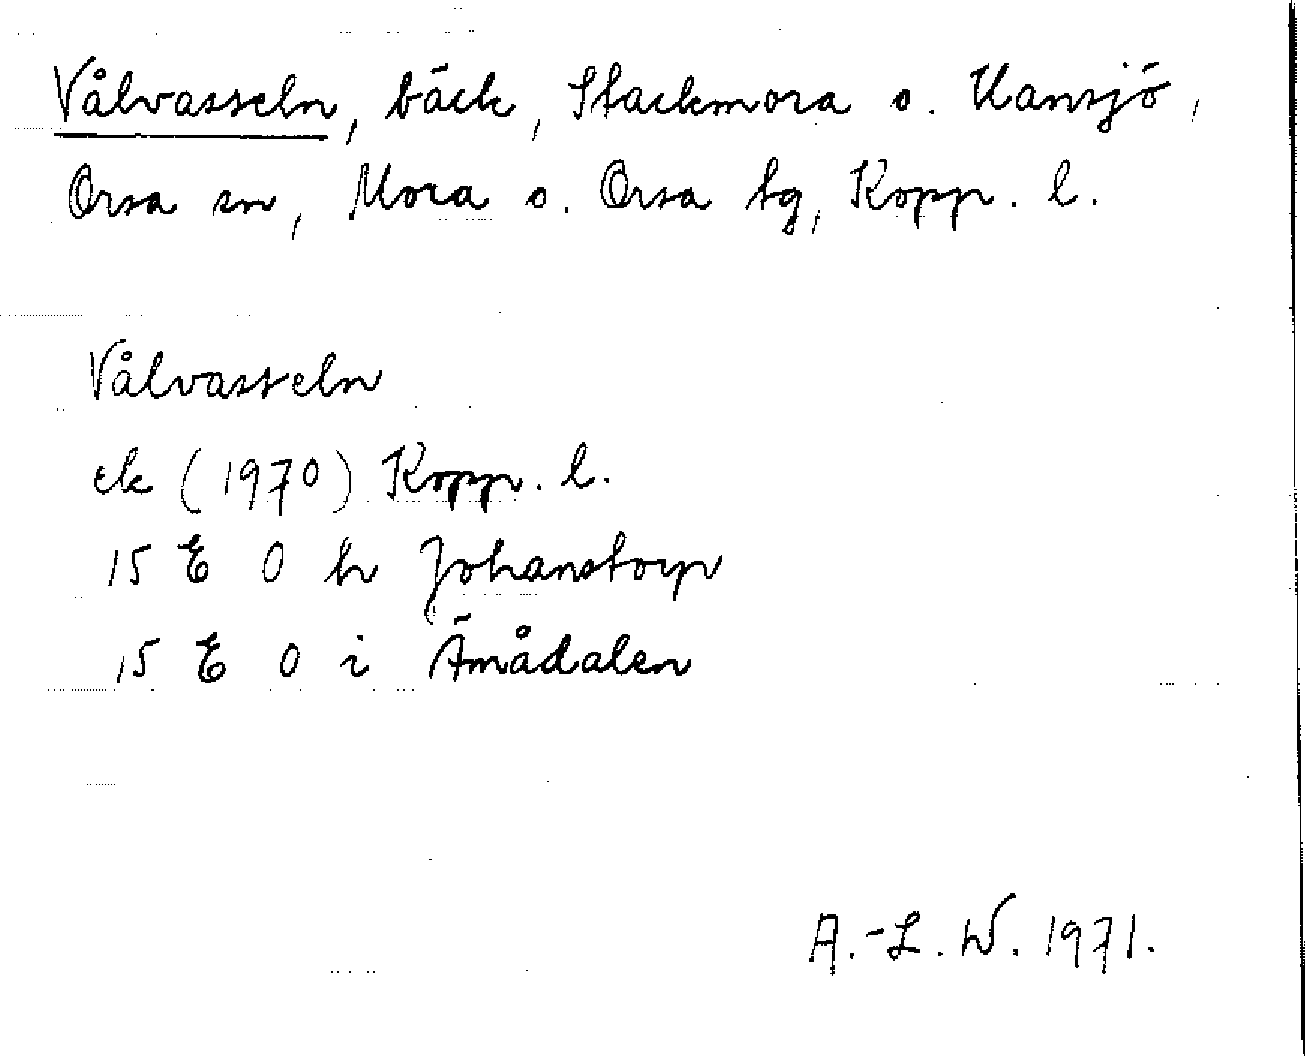 Vålvasseln, bäck, Stackmora o. Hansjö,
Orsa sn, Mora o. Orsa tg, Kopp. l.
Vålvasseln
ek (1970) Kopp. l.
15 E 0 h Johanstorp
15 E 0 i Ämådalen
A.-L. W. 1971.